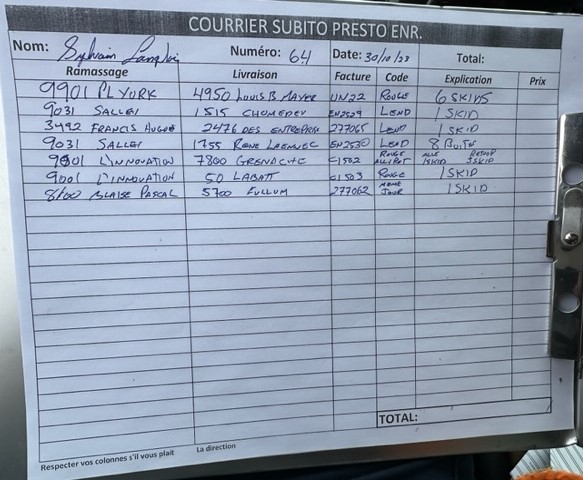 COURRIER SUBITO PRESTO ENR.
Nom: Sylvain Langlois Numéro: 64 Date: 30/10/23 Total:
Ramassage Livraison Facture Code Explication Prix
9901 PL YORK 4950 LOUIS B MAYER UN22 ROUGE 6 SKIDS
9031 SALLEY 1515 CHOMEDEY EN2529 LEND 1 SKID
3492 FRANCIS HUGUES 2476 DES ENTREPRISE 277065 LEND 1 SKID
9031 SALLEY 1755 RENE LAENNEC EN2530 LEND 8 BOITE
9001 L'INNOVATION 7800 GRENACHE C1502 ROUGE ALL RET ALLE 1SKID RETOUR 3SKID
9001 L'INNOVATION 50 LABATT C1503 ROUGE 1 SKID
8100 BLAISE PASCAL 5700 FULLUM 277062 MEME JOUR 1 SKID
TOTAL:
Respecter vos colonnes s'il vous plait La direction